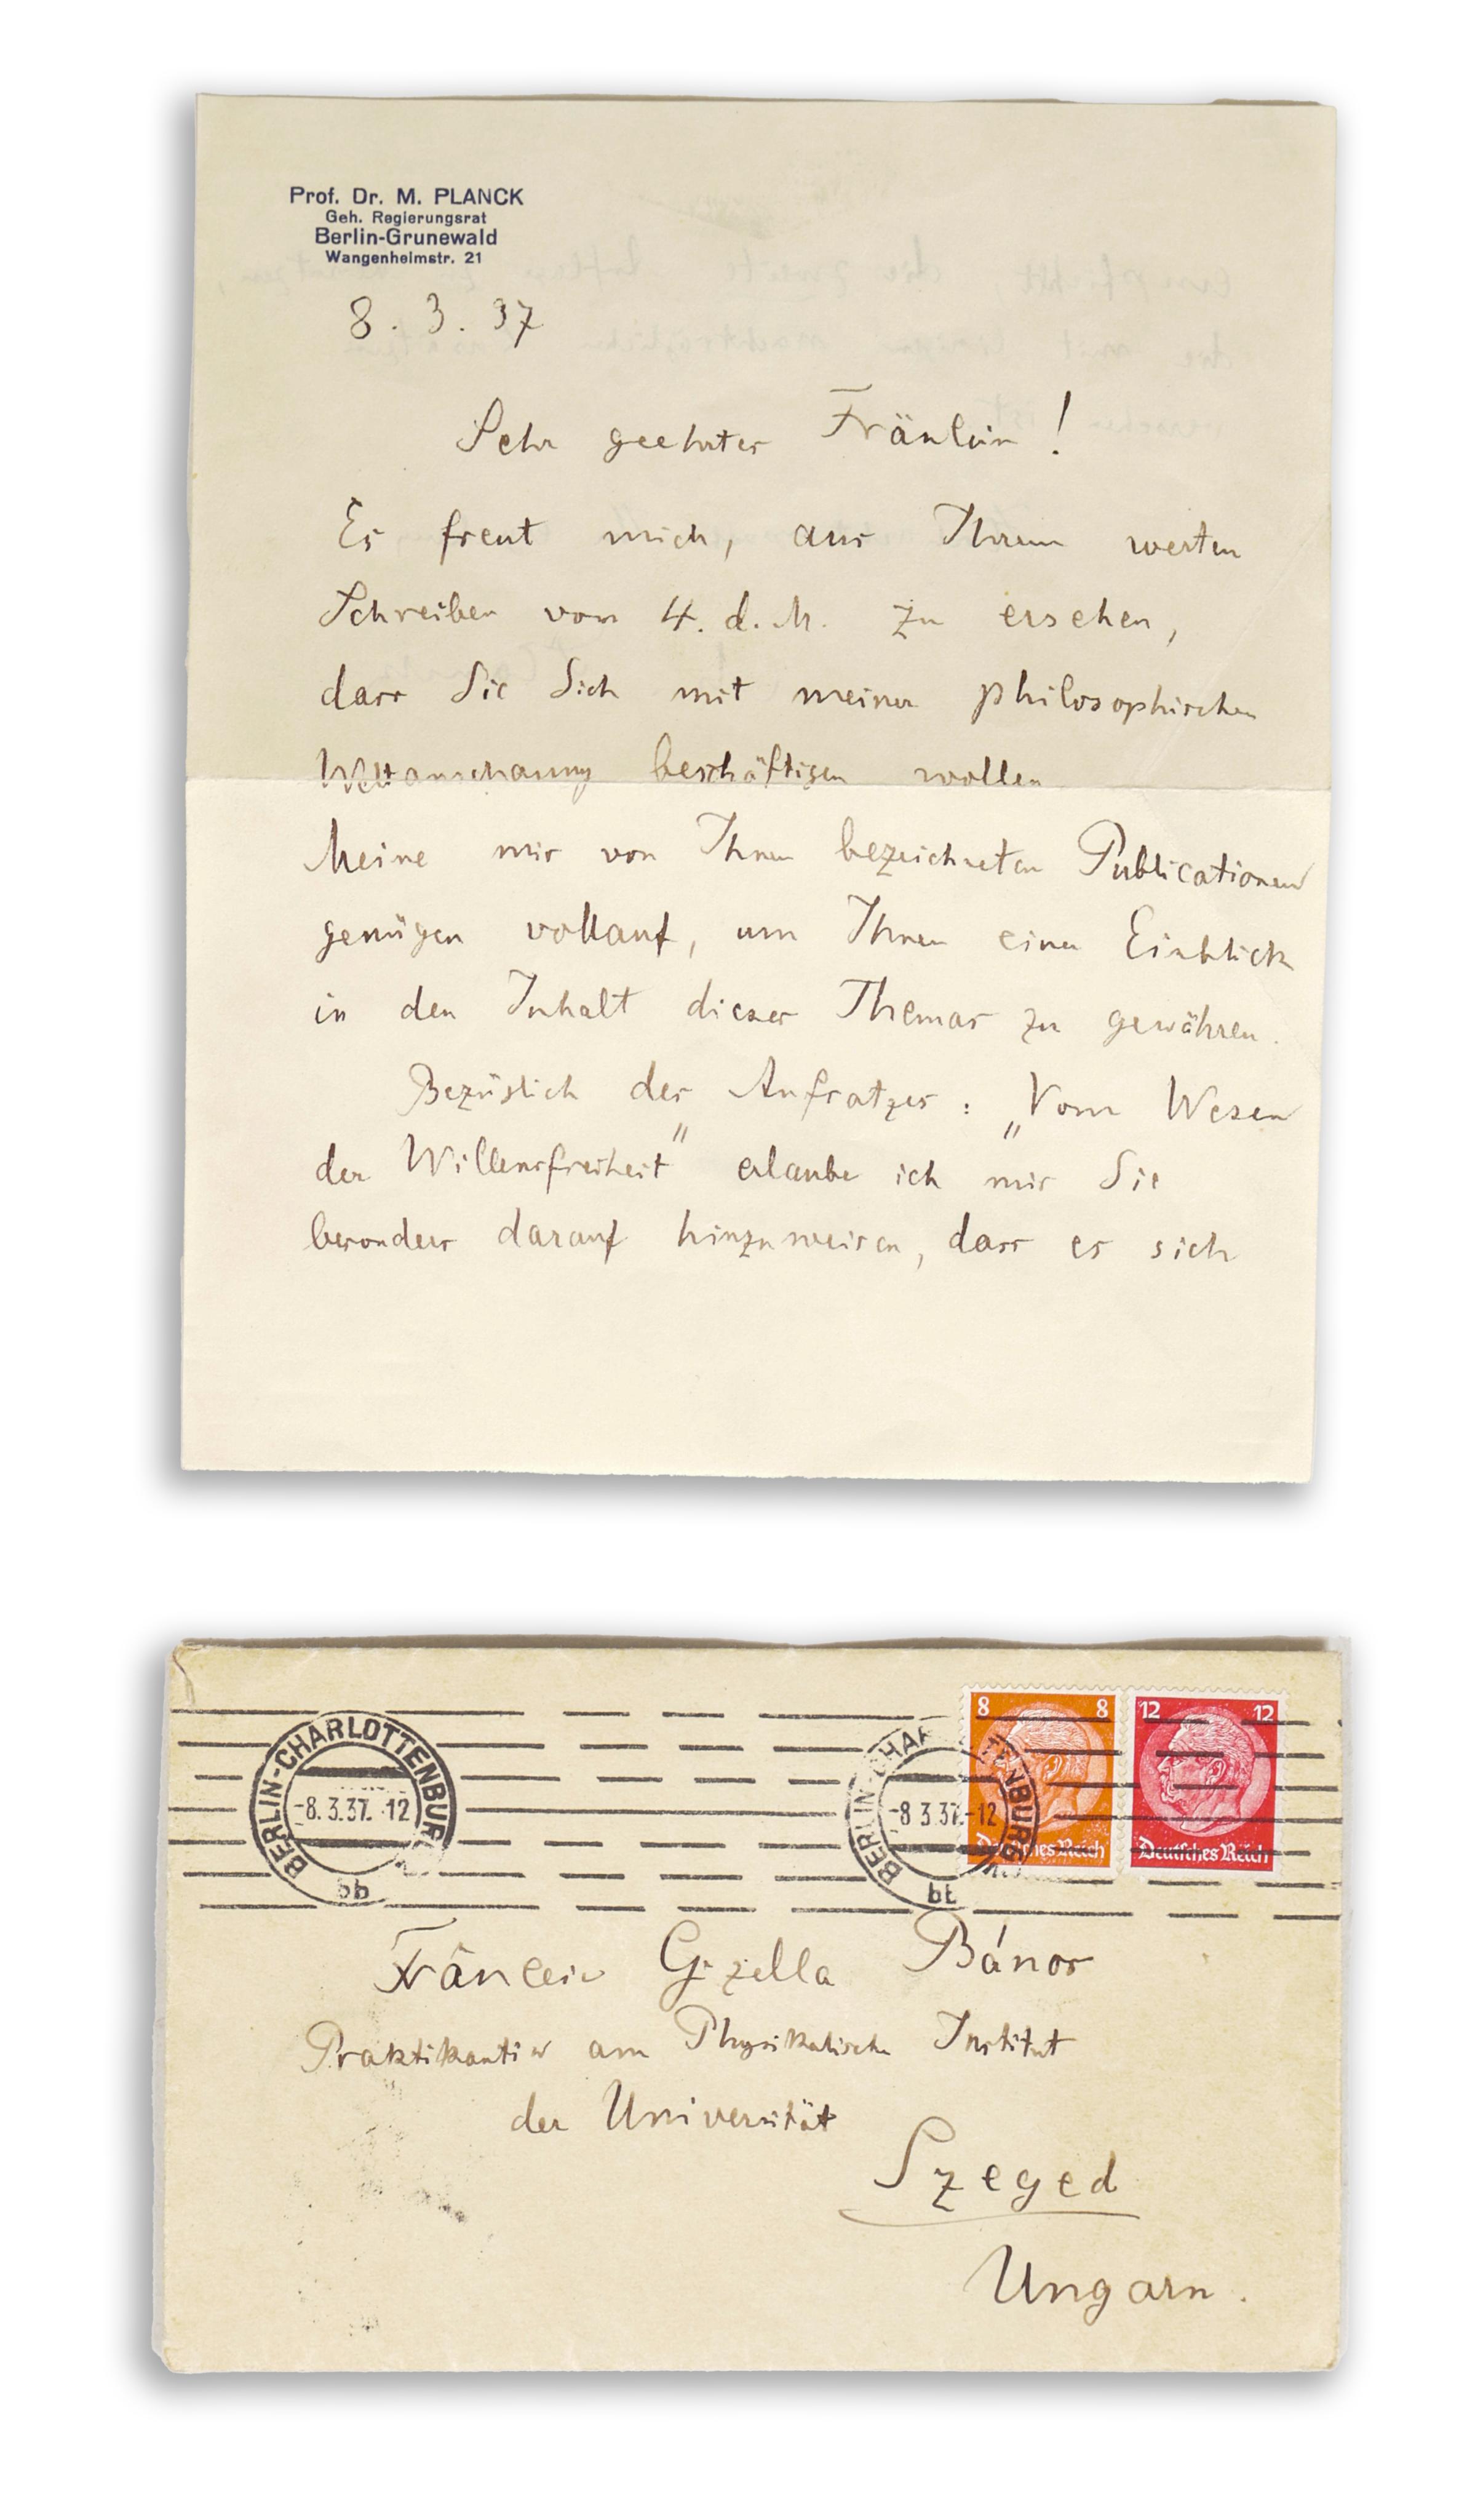 Prof. Dr. M. PLANCK
Geh. Regierungsrat
Berlin-Grunewald
Wangenheimstr. 21
8. 3. 37
Sehr geehrtes Fräulein!
Es freut mich, aus Ihrem werten
Schreiben vom 4. d. M. zu ersehen,
dass Sie Sich mit meiner philosophischen
Weltanschauung beschäftigen wollen
Meine mir von Ihnen bezeichneten Publicationen
genügen vollauf, um Ihnen einen Einblick
in den Inhalt dieses Themas zu gewähren.
Bezüglich des Aufsatzes: „Vom Wesen
der Willensfreiheit" erlaube ich mir Sie
besonders darauf hinzuweisen, dass es sich
BERLIN-CHARLOTTENBURG
-8.3.37.-12
bb
BERLIN-CHARLOTTENBURG
-8 3.37.-12
bb
8 8
Deutsches Reich
12 12
Deutsches Reich
Fräulein Gizella Bános
Praktikantin am Physikalischen Institut
der Universität
Szeged
Ungarn.